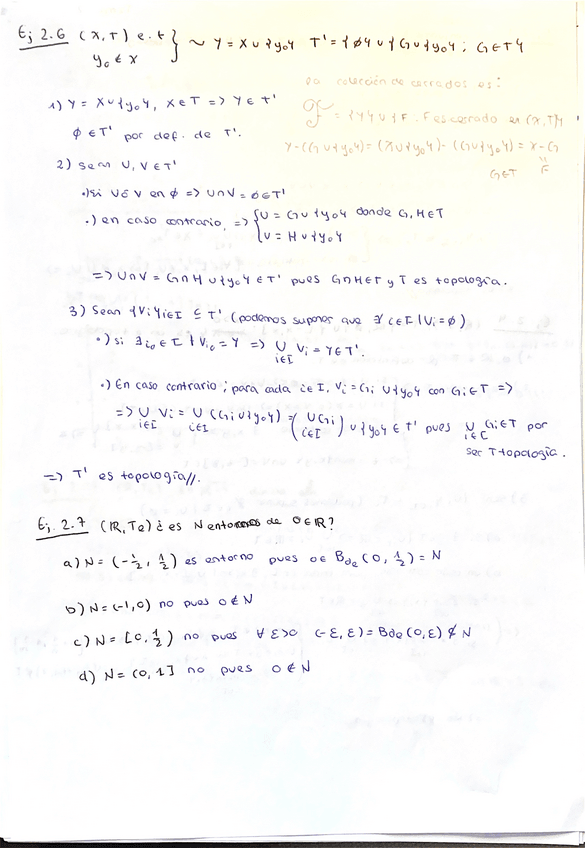 Ej 2.6 (X,T) e.t } ~ Y = X ∪ {y₀} T' = {∅} ∪ {G ∪ {y₀} ; G ∈ T}
y₀ ∈ X
La colección de cerrados es:
F = {Y} ∪ {F. F es cerrado en (X,T)}
Y-(G∪{y₀}) = (X∪{y₀}) - (G∪{y₀}) = X-G
G∈T
"
F
1) Y = X∪{y₀}, X∈T => Y∈T'
∅ ∈ T' por def. de T'.
2) Sean U, V ∈ T'
·) si U ó V en ∅ => U∩V = ∅ ∈ T'
·) en caso contrario, => { U = G∪{y₀} donde G, H∈T
U = H∪{y₀}
=> U∩V = G∩H ∪{y₀} ∈ T' pues G∩H∈T y T es topología.
3) Sean {Vi}i∈I ⊆ T' (podemos suponer que ∄ i∈I | Vi = ∅)
·) si ∃ i₀ ∈ I | Vi₀ = Y => ∪ i∈I Vi = Y ∈ T'.
·) En caso contrario; para cada i∈I, Vi = Gi ∪{y₀} con Gi∈T =>
=> ∪ i∈I Vi = ∪ i∈I (Gi∪{y₀}) = (∪ i∈I Gi) ∪{y₀} ∈ T' pues ∪ i∈I Gi∈T por
ser T topología.
=> T' es topología//.
Ej. 2.7 (ℝ, Te) ¿es N entorno de 0∈ℝ?
a) N = (-1/2, 1/2) es entorno pues 0∈ Bde(0, 1/2) = N
b) N = (-1,0) no pues 0∉N
c) N = [0, 1/2) no pues ∀ε>0 (-ε, ε) = Bde(0,ε) ⊄ N
d) N = (0, 1] no pues 0∉N